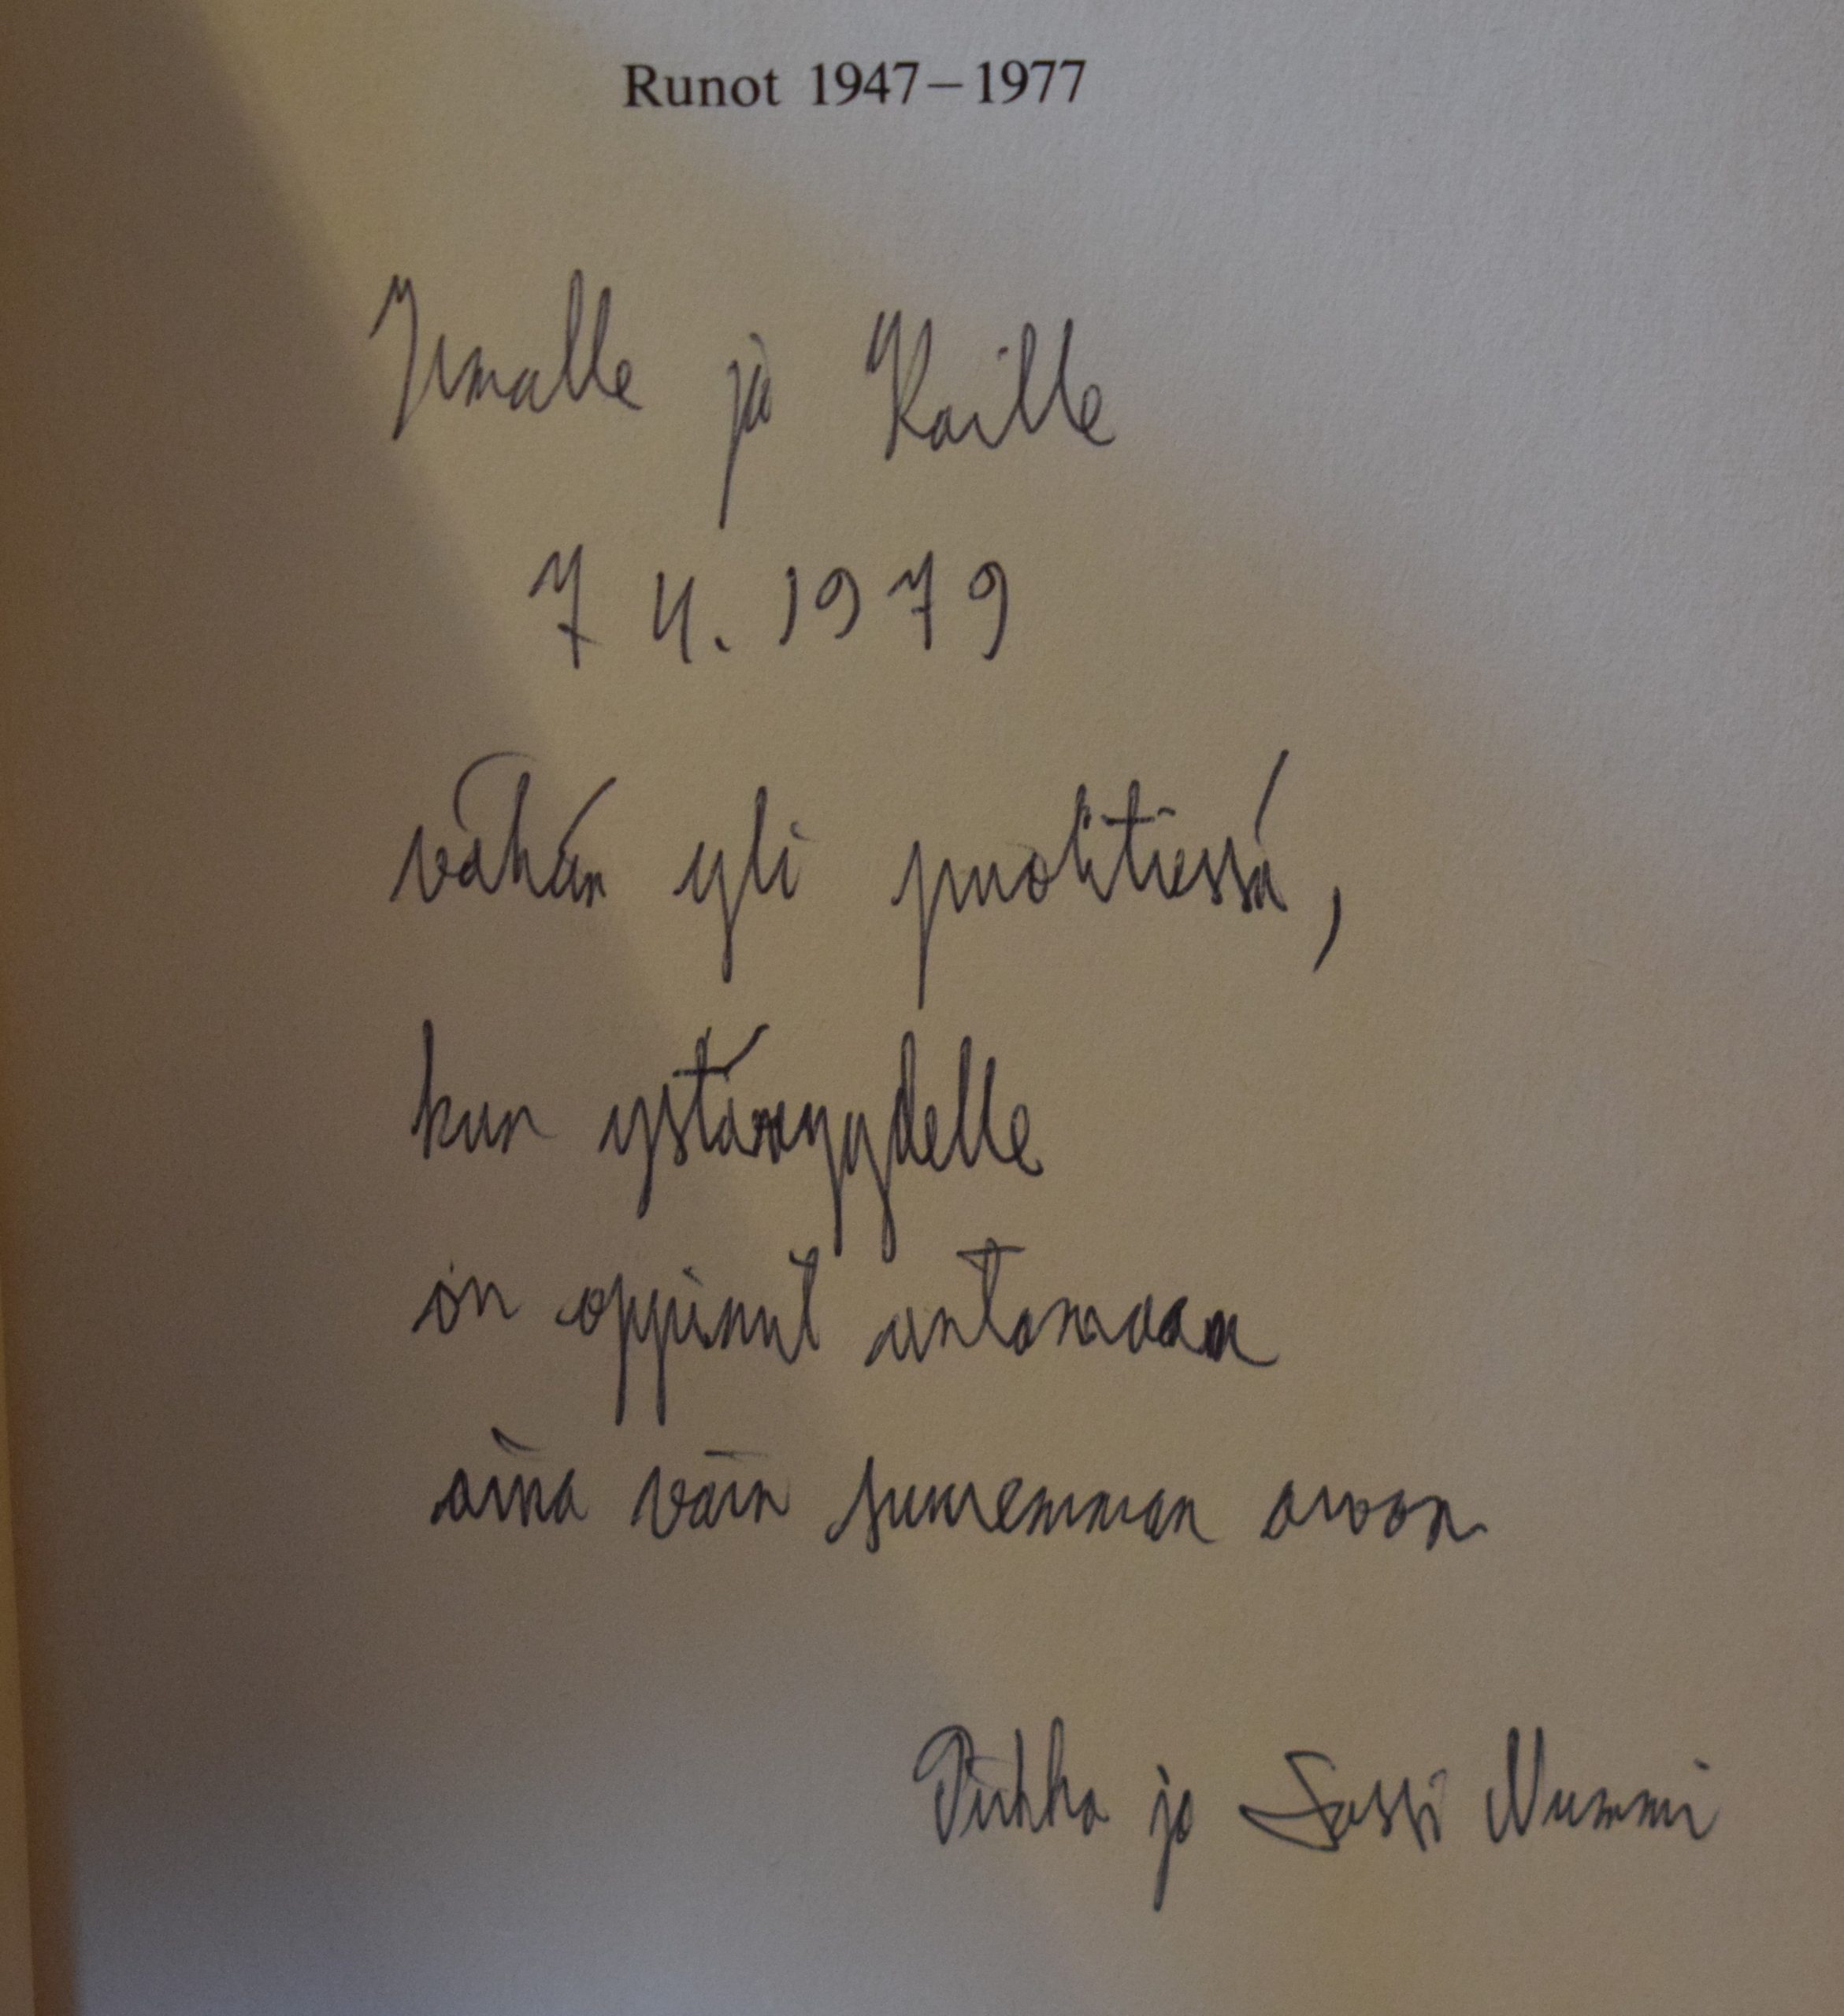 Runot 1947–1977
Irmalle ja Kaille
7 4. 1979
vähän yli puolitiessä,
kun ystävyydelle
on oppinut antamaan
aina vain suuremman arvon
Pirkko ja Lassi Nummi